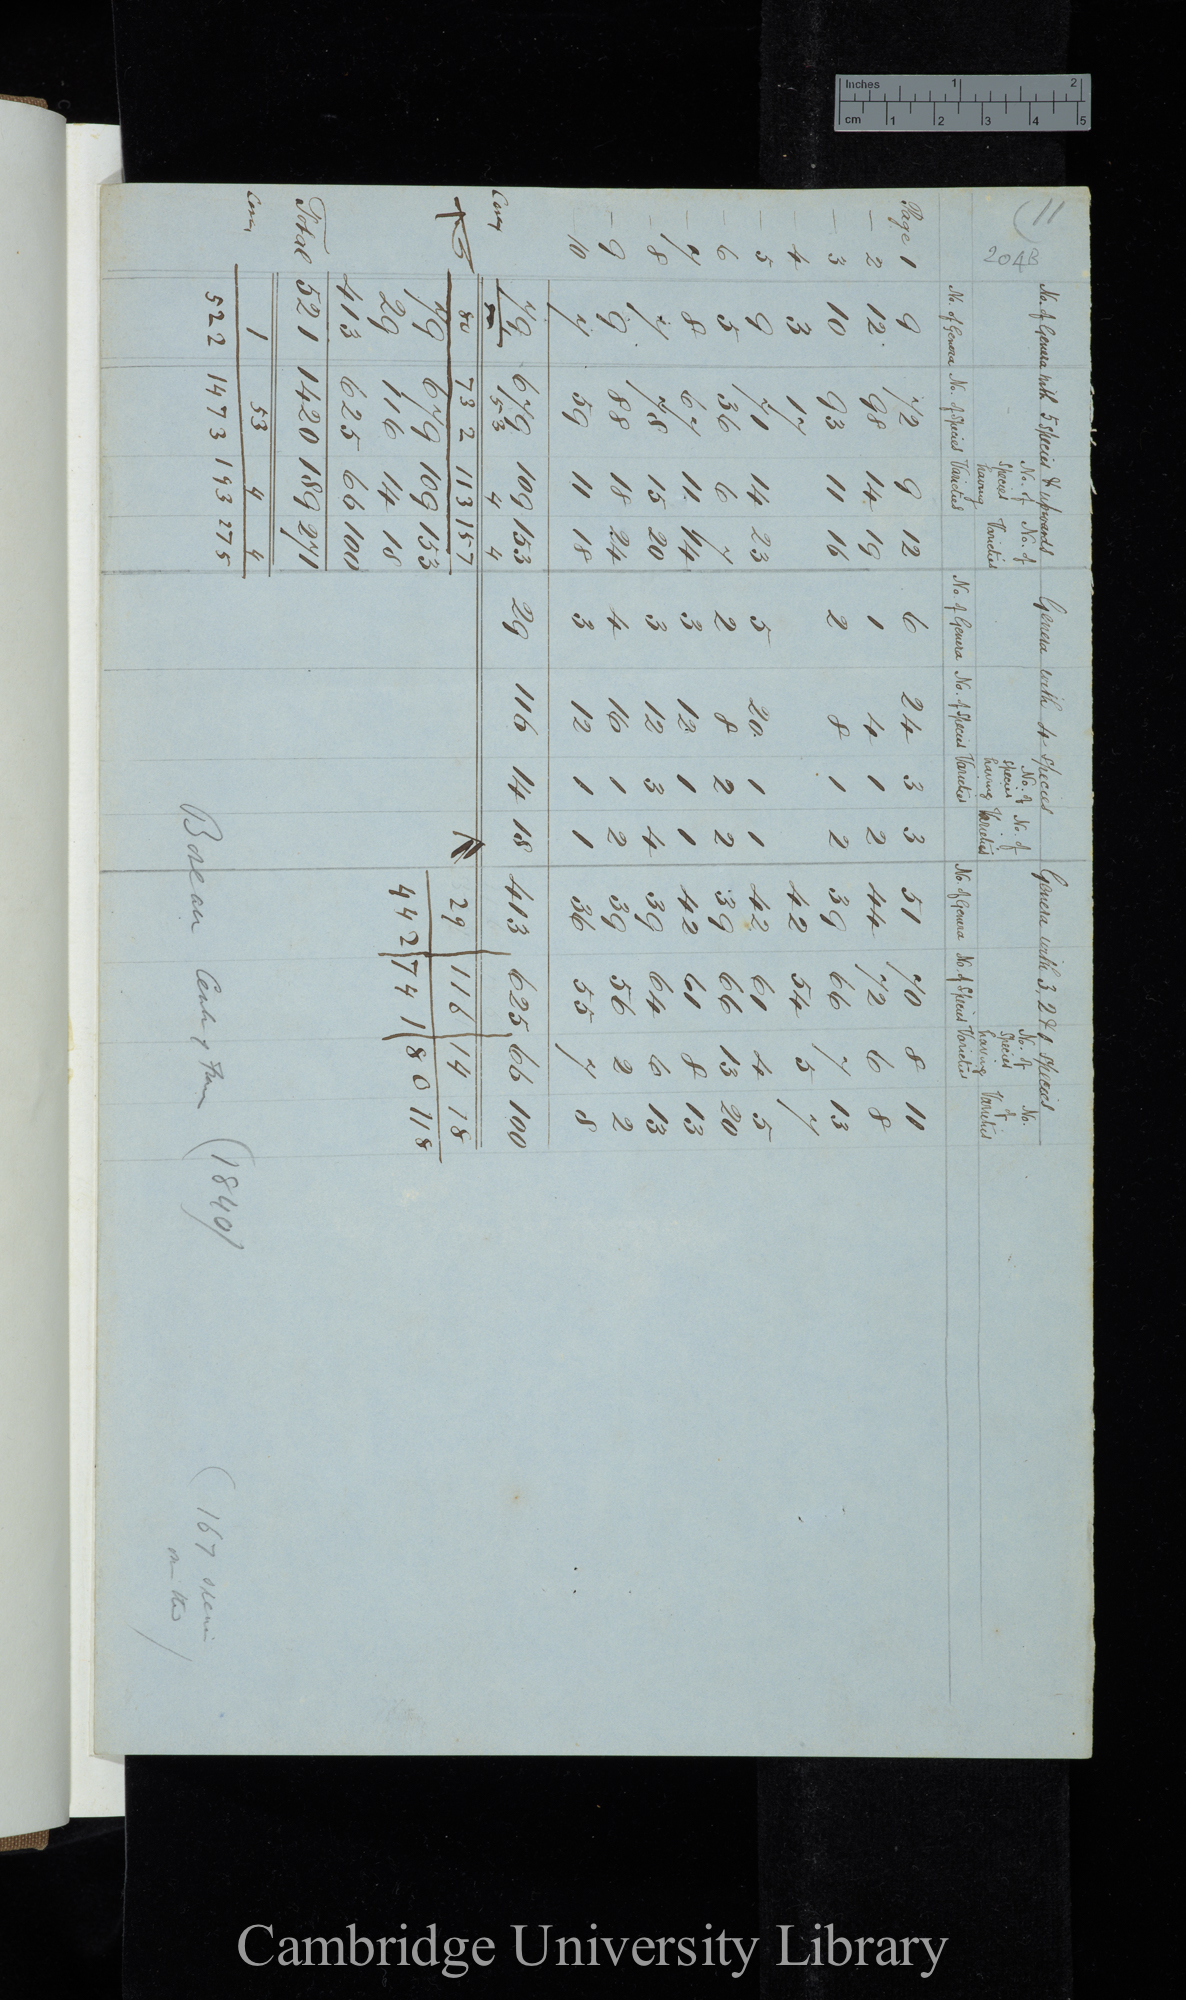 Inches 1 2
cm 1 2 3 4 5
(11
204B
No. of Genera with 5 species & upwards Genera with 4 species Genera with 3, 2 & 1 species
No. of Genera No. of Species No. of Species having Varieties No. of Varieties No. of Genera No. of Species No. of Species having Varieties No. of Varieties No. of Genera No. of Species No. of Species having Varieties No. of Varieties
Page 1 9 72 9 12 6 24 3 3 51 70 8 11
— 2 12 98 14 19 1 4 1 2 44 72 6 8
— 3 10 93 11 16 2 8 1 2 39 66 7 13
— 4 3 17 42 54 5 7
— 5 9 71 14 23 5 20 1 1 42 61 4 5
— 6 5 36 6 7 2 8 2 2 39 66 13 20
— 7 8 67 11 14 3 12 1 1 42 61 8 13
— 8 7 78 15 20 3 12 3 4 39 64 6 13
— 9 9 88 18 24 4 16 1 2 39 56 2 2
— 10 7 59 11 18 3 12 1 1 36 55 7 8
79 679 109 153 29 116 14 18 413 625 66 100
53 4 4
80 732 113 157 29 116 14 18
442 741 80 118
79 679 109 153
29 116 14 18
413 625 66 100
Total 521 1420 189 271
1 53 4 4
522 1473 193 275
Boreau Cent. of France (1840)
(167 species
omitted)
Cambridge University Library